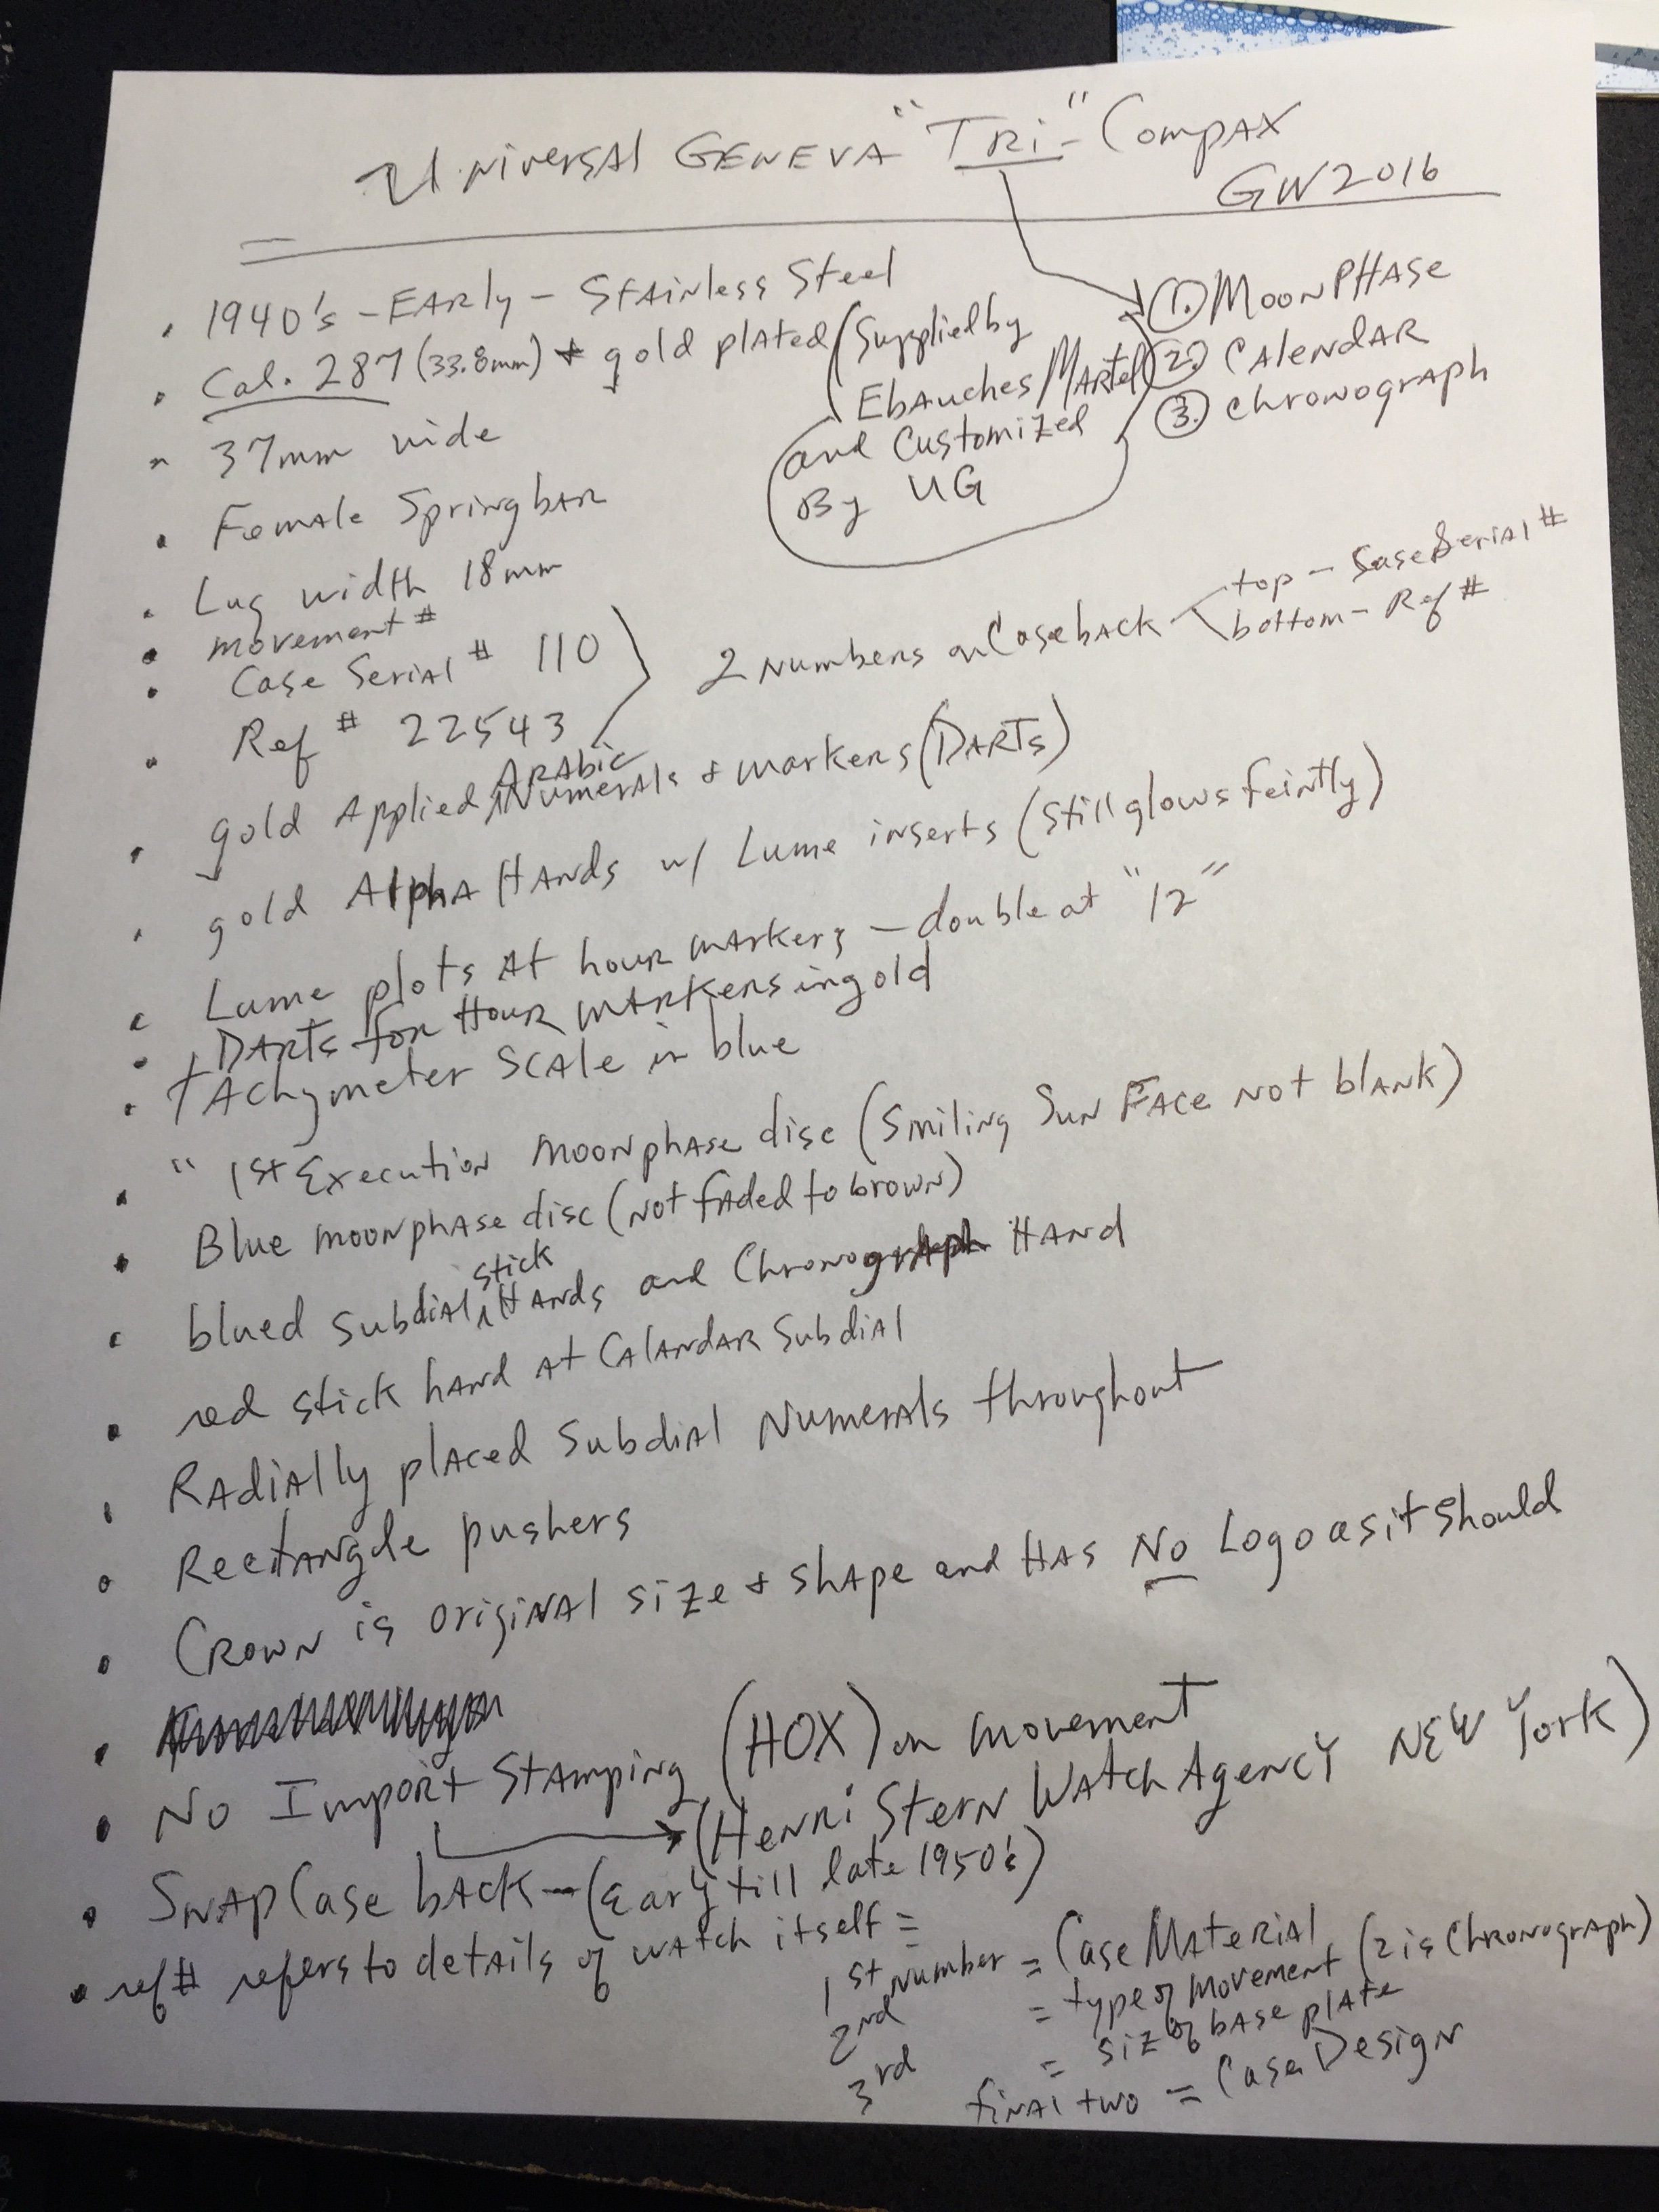 Universal GENEVA "TRi-" COMPAX
GW2016
• 1940's - EARly - StAinless Steel
• Cal. 287 (33.8mm) + gold plated (Supplied by
Ebauches MARtel
and Customized
By UG
① MOONPHAse
② CAlendAR
③ Chronograph
• 37mm wide
• Female SpringbAR
• Lug width 18mm
• movement #
• Case SeriAl # 110
• Ref # 22543
2 Numbers on Caseback
top - Case Serial #
bottom - Ref #
• gold Applied ARAbic NumerAls + markers (DARTs)
• gold AlphA HANds w/ Lume inserts (Still glows feintly)
• Lume plots At hour mArkers - double at "12"
• DARTs for Hour mARKers in gold
• tAchymeter SCAle in blue
• " 1st Execution moonphase disc (Smiling Sun FAce Not blANK)
• Blue moonphAse disc (Not fAded to brown)
• blued subdiAl stick HANds and Chronograph HANd
• red stick hANd At CAlANdAR SubdiAl
• RAdiAlly plAced SubdiAl NumerAls throughout
• RectANgle pushers
• CROWN is originAl size + shApe and HAs No Logo as it should
• No Import StAmping (HOX) on movement
(HeNRi SterN WAtch AgencY NEW York)
• SNAp Case bAck - (Early till late 1950's)
• ref# refers to detAils of wAtch itself =
1st Number = Case MAteriAl
2nd = type of movement (2 is ChRONogrAph)
3rd = siz of bAse plAte
finAl two = Case Design